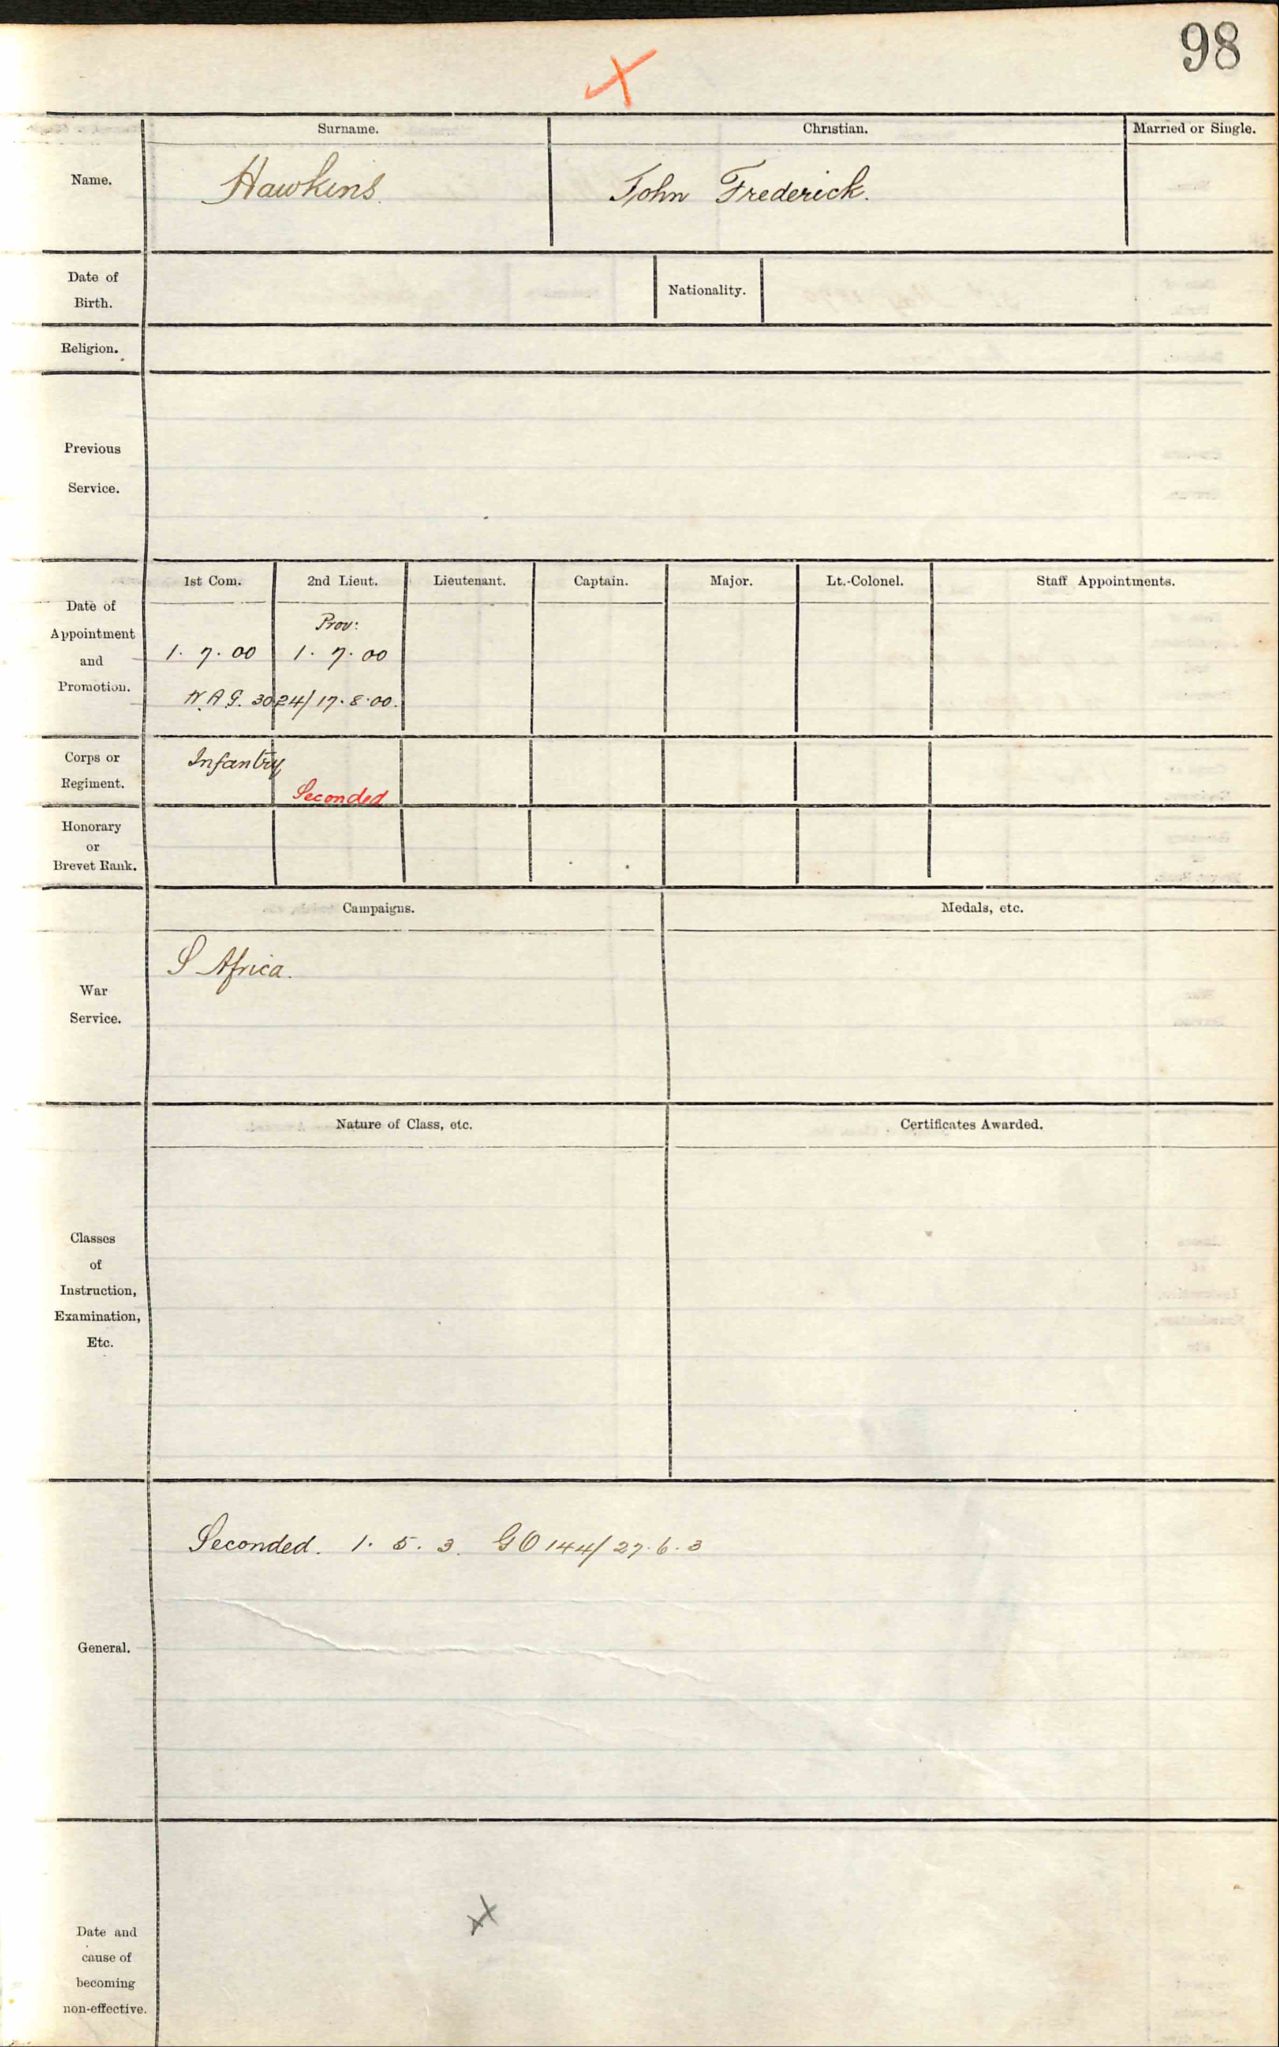 98
Surname. Christian. Married or Single.
Name. Hawkins. John Frederick.
Date of
Birth.
Nationality.
Religion.
Previous
Service.
1st Com. 2nd Lieut. Lieutenant. Captain. Major. Lt.-Colonel. Staff Appointments.
Date of
Appointment
and
Promotion.
Prov:
1. 7. 00 1. 7. 00
W.A.G. 3024/17.8.00.
Corps or
Regiment.
Infantry
Seconded
Honorary
or
Brevet Rank.
Campaigns. Medals, etc.
War
Service.
S Africa.
Nature of Class, etc. Certificates Awarded.
Classes
of
Instruction,
Examination,
Etc.
General.
Seconded. 1. 5. 3. GO 144/27.6.3
Date and
cause of
becoming
non-effective.